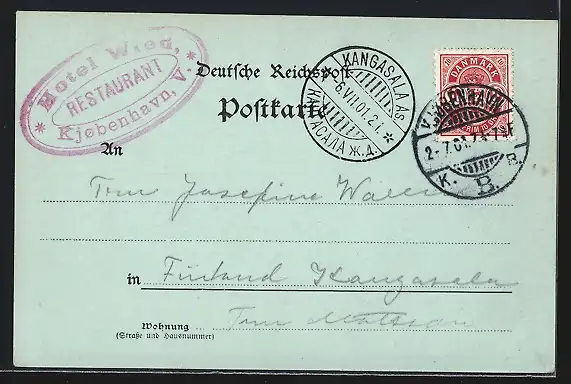 Hotel Wied,
RESTAURANT
Kjøbenhavn, V.
Deutsche Reichspost
Postkarte
KANGASALA AS.
6.VII.01.21.
КАНГАСАЛА Ж.Д.
DANMARK
KJØBENHAVN
2-7.01.
K. B.
An
Josefine
in Finland Kangasala
Wohnung
(Straße und Hausnummer)